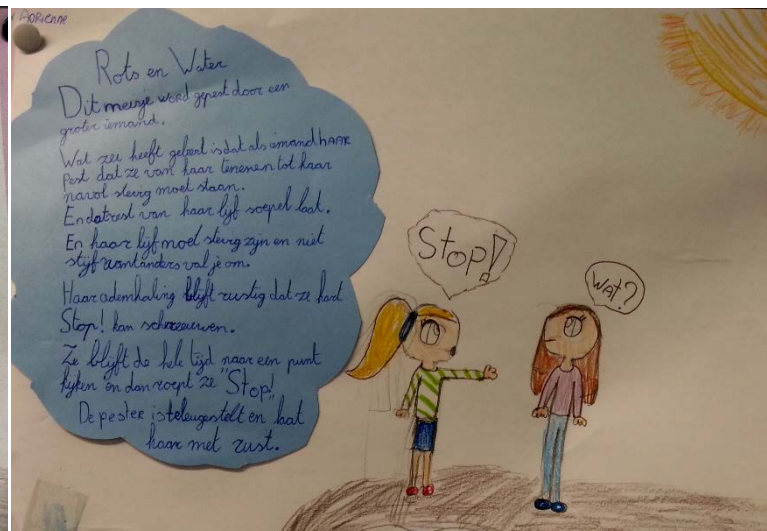 ADRIENNE
Rots en Water
Dit meisje word gepest door een
groter iemand.
Wat zeu heeft geleert is dat als imand HAAR
Pest dat ze van haar tenenen tot haar
navol stevig moet staan.
En dat rest van haar lijf soepel laat.
En haar lijf moet stevig zijn en niet
stijf want anders val je om.
Haar ademhaling blijft rustig dat ze hart
Stop! kan schreeuwen.
Ze blijft de hele tijd naar een punt
kijken en dan roept ze "Stop!"
De pester is teleugestelt en laat
haar met rust.
Stop!
WAT?